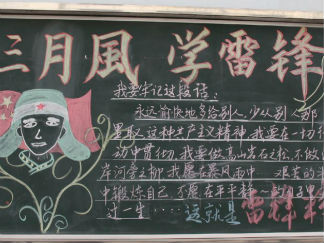 三月風 学雷锋
我要牢记这段话：
永远愉快地多给别人，少从别人那
里取 这种共产主义精神，我要在一切行
动中贯彻 我要做高山岩石之松，不做
岸河旁之柳 我愿在暴风雨中 艰苦的
中锻炼自己 不愿在平平静
过一生…… 这就是